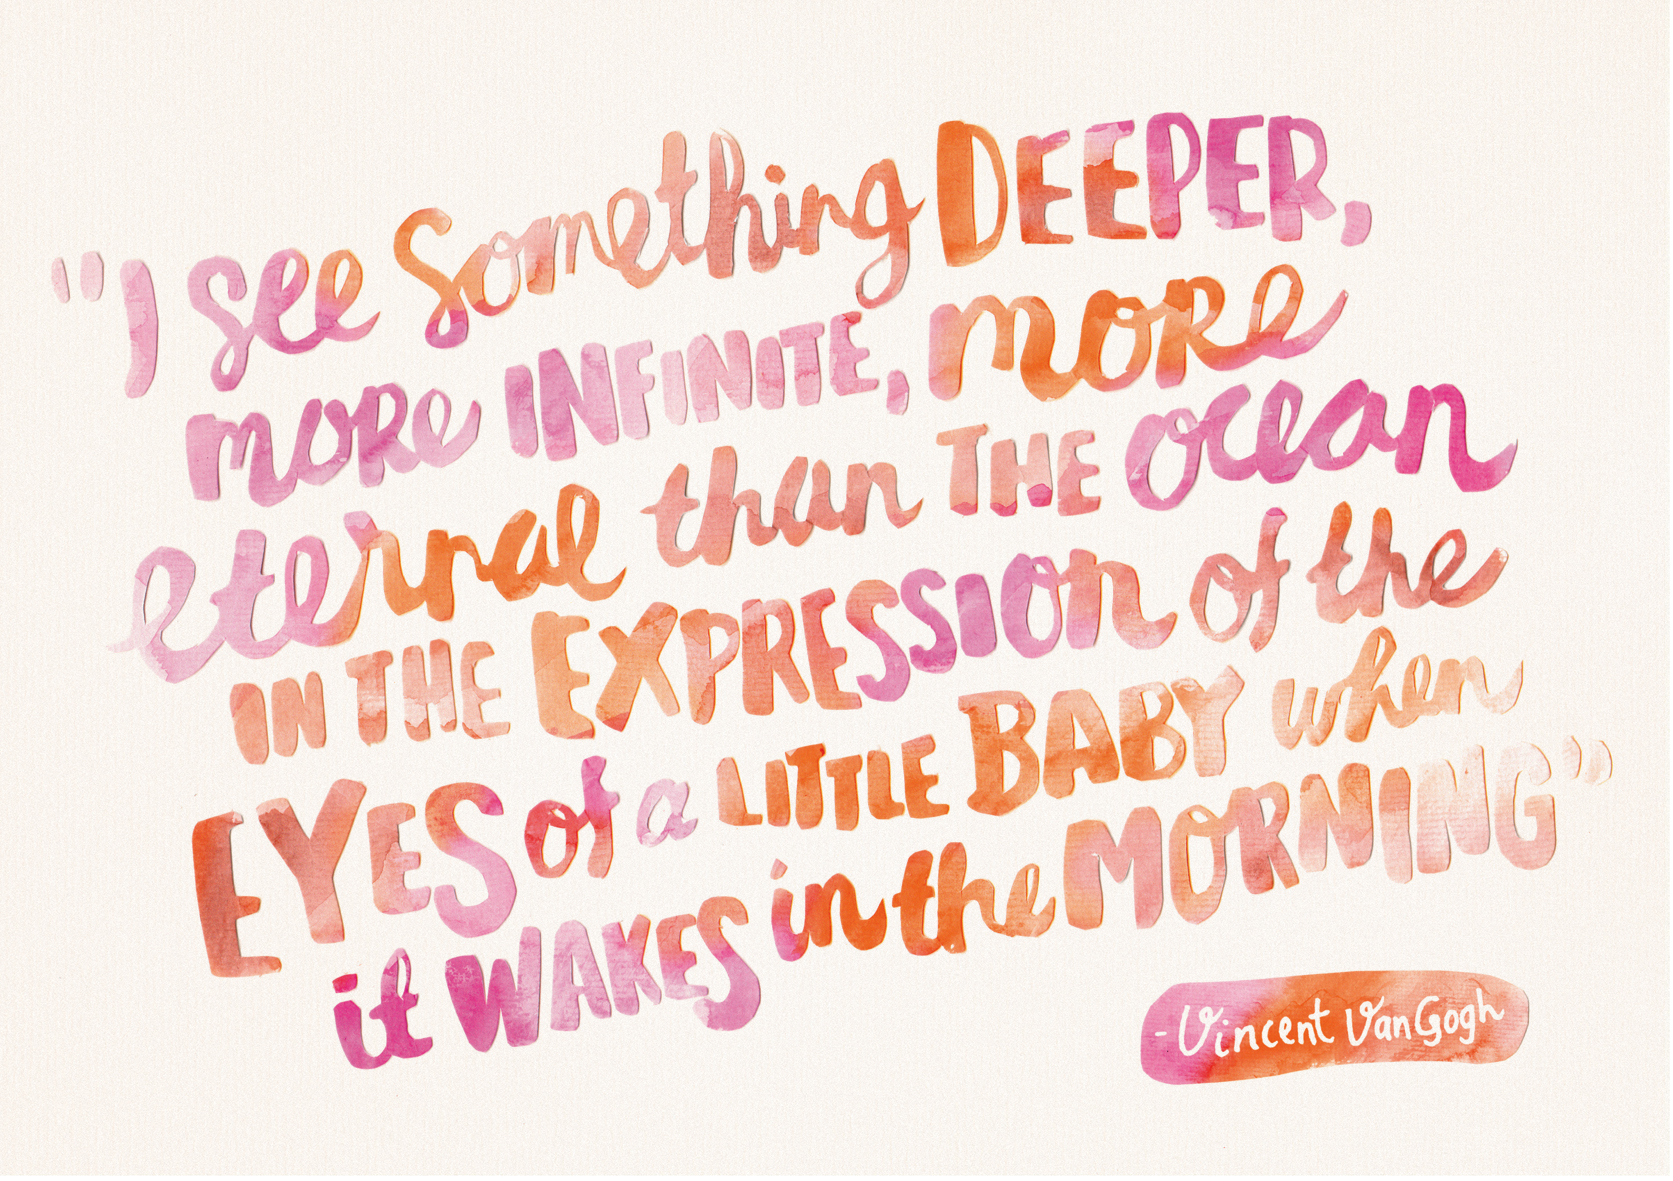 "I see Something DEEPER,
more INFINITE, more
eternal than THE ocean
IN THE EXPRESSION of the
EYES of a LITTLE BABY when
it WAKES in the MORNING"
- Vincent Van Gogh